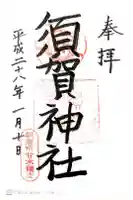 奉拝
須賀神社
平成二十八年一月廿日